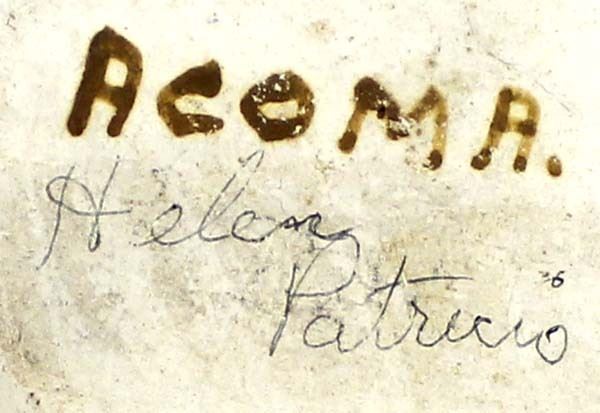 ACOMA.
Helen
Patricio